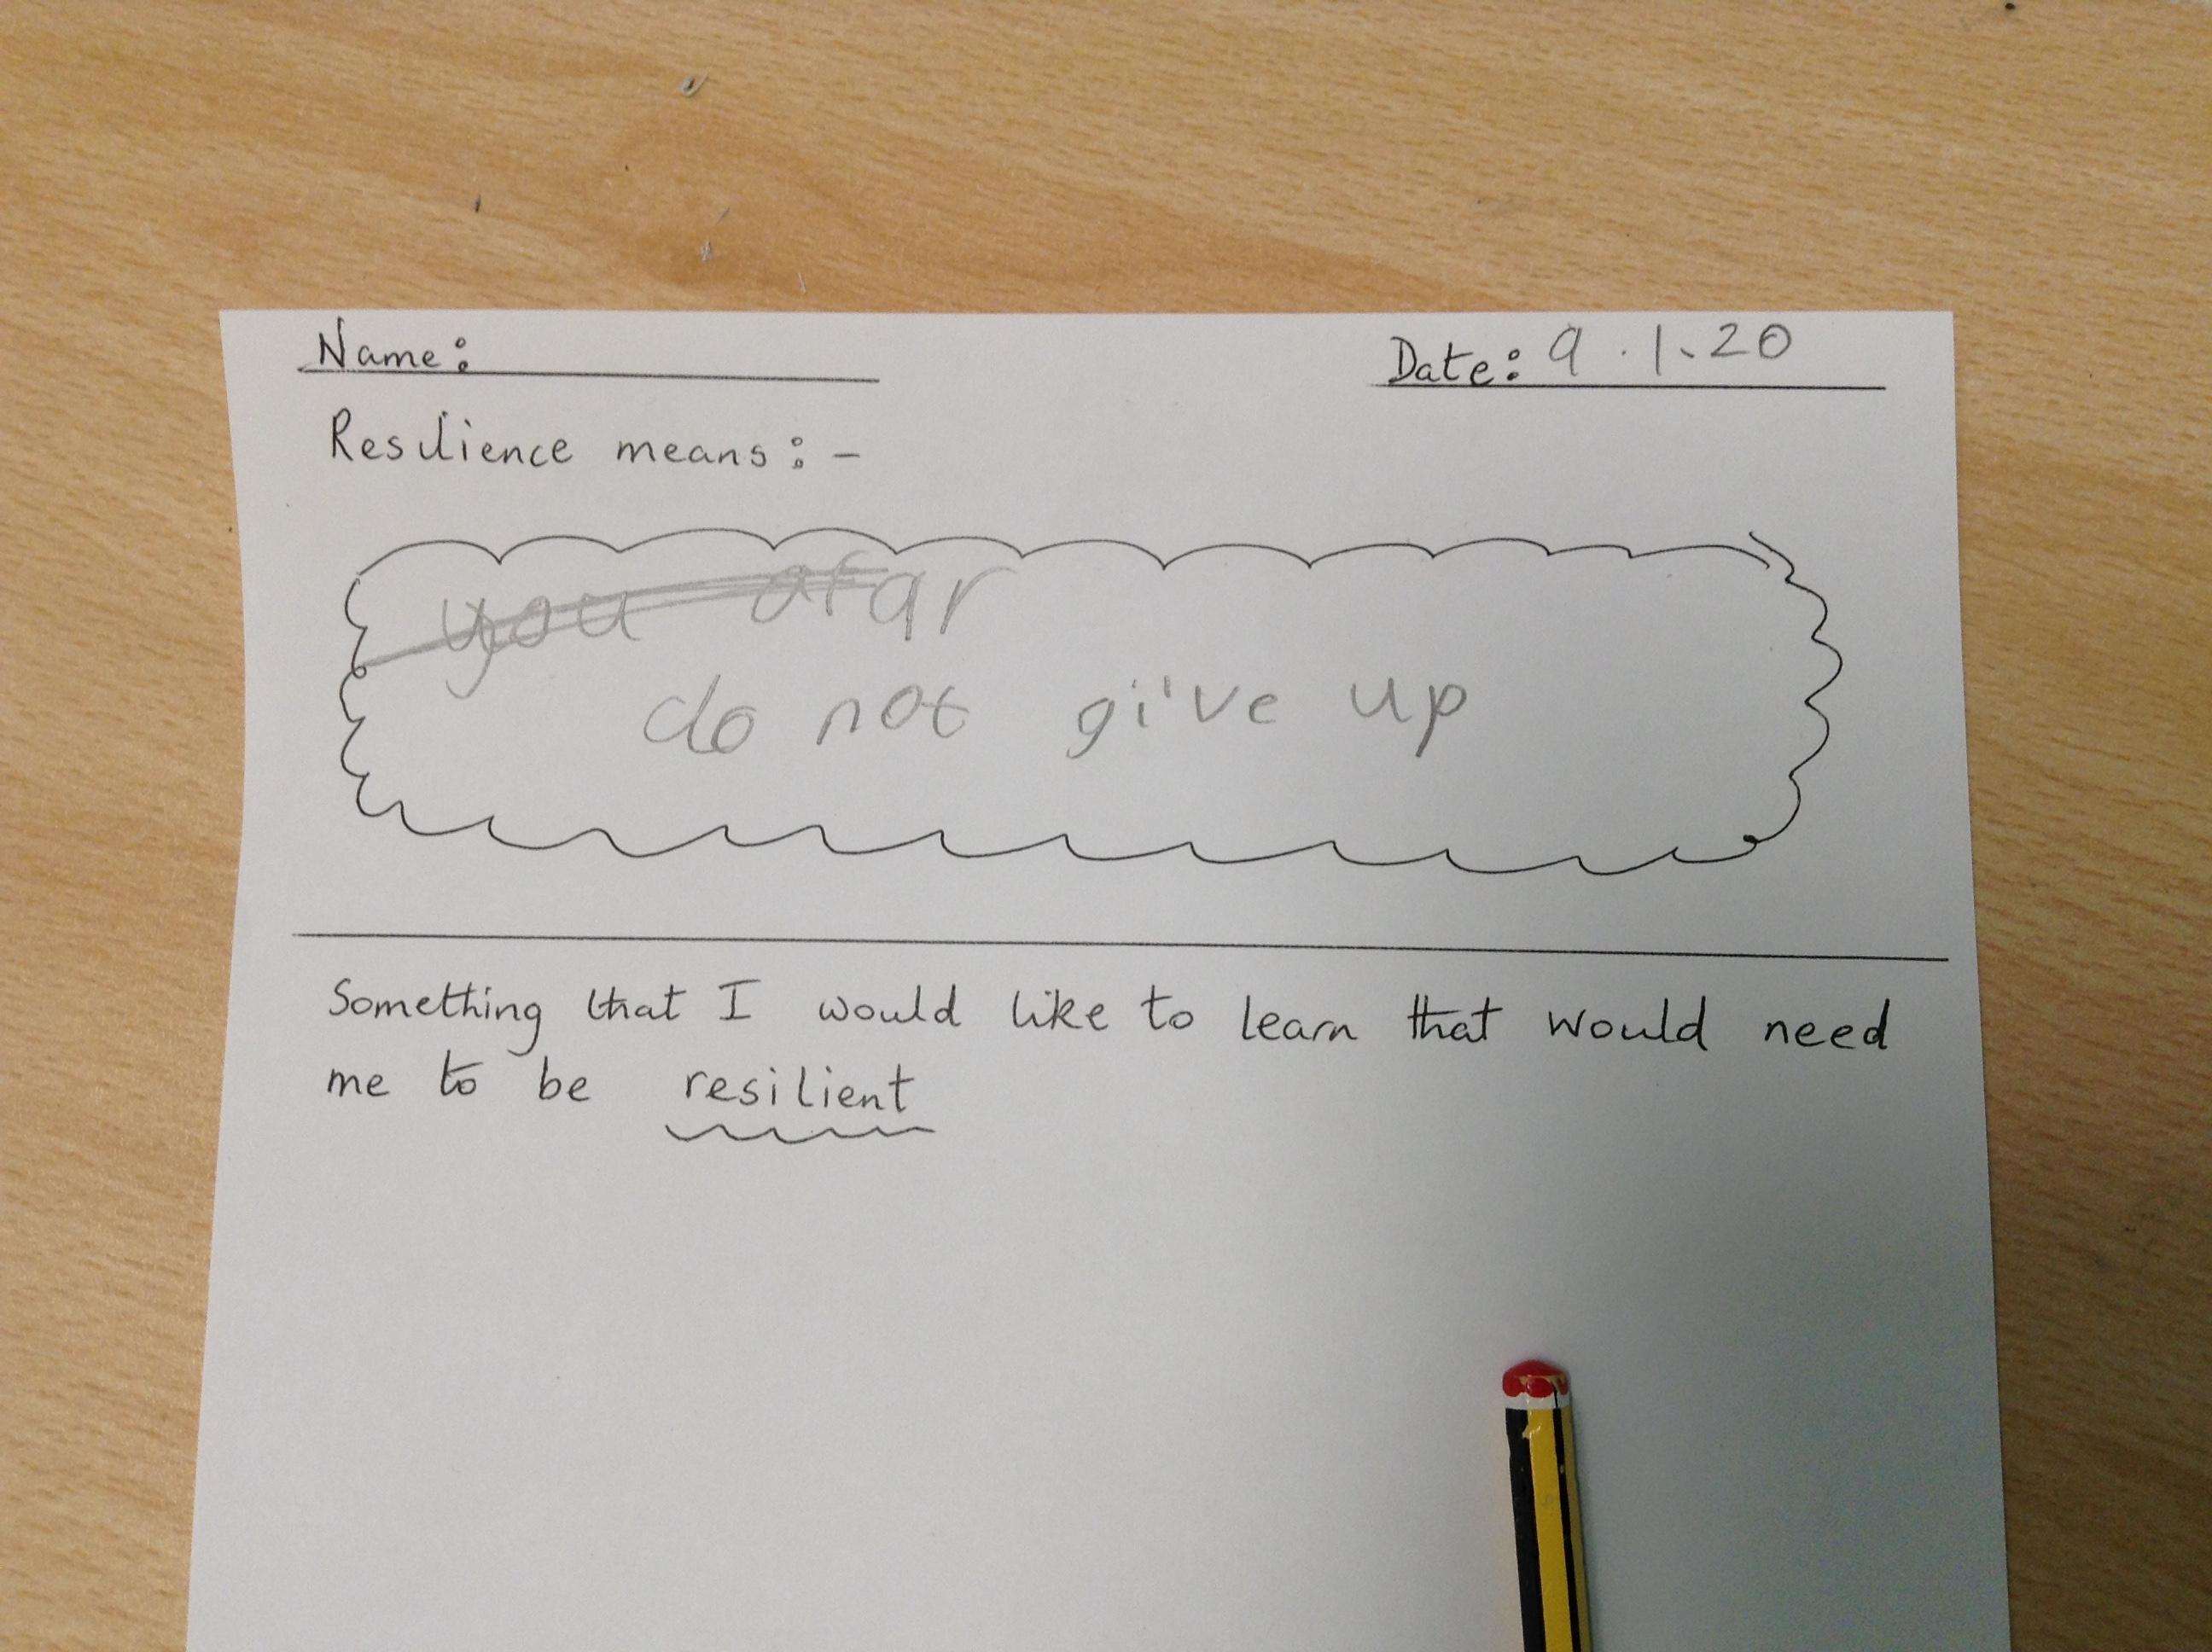 Name: Date: 9.1.20
Resilience means:-
you afar
do not give up
Something that I would like to learn that would need
me to be resilient